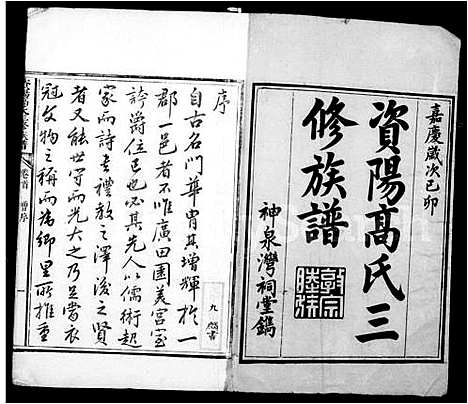 嘉慶歲次己卯
資陽高氏三
修族譜
敦宗
睦族
神泉灣祠堂鐫
序
自古名門華胄其增輝於一
郡一邑者不唯廣田園美宮室
誇爵位已也必其先人以儒術起
家而詩書禮教之澤後之賢
者又能世守而光大之乃足當衣
冠文物之稱而為鄉里所推重
卷首
一